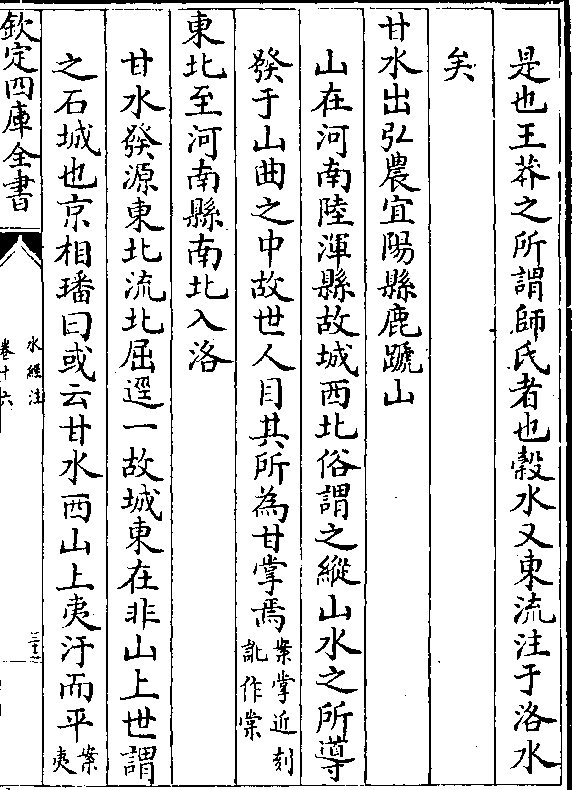 是也王莽之所謂師氏者也穀水又東流注于洛水
矣
甘水出弘農宜陽縣鹿蹏山
山在河南陸渾縣故城西北俗謂之縱山水之所導
發于山曲之中故世人目其所為甘掌焉案掌近刻
訛作棠
東北至河南縣南北入洛
甘水發源東北流北屈逕一故城東在非山上世謂
之石城也京相璠曰或云甘水西山上夷汙而平案
夷
欽定四庫全書
水經注
卷十六